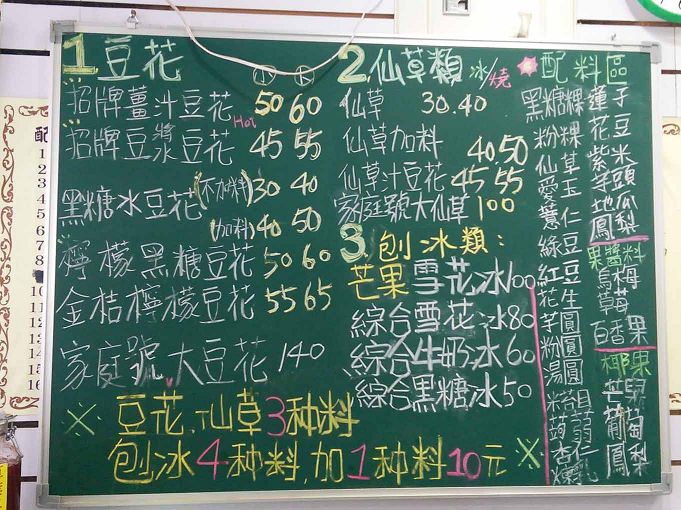 1 豆花 小 大
招牌薑汁豆花 50 60
Hot
招牌豆漿豆花 45 55
黑糖冰豆花 (不加料) 30 40
(加料) 40 50
檸檬黑糖豆花 50 60
金桔檸檬豆花 55 65
家庭號大豆花 140
2. 仙草類 冰/燒
仙草 30.40
仙草加料 40.50
仙草汁豆花 45 55
家庭號大仙草 100
3. 刨冰類:
芒果雪花冰100
綜合雪花冰80
綜合牛奶冰60
綜合黑糖冰50
※ 豆花,仙草3种料
刨冰4种料,加1种料10元 ※
配料區
黑糖粿
粉粿
仙草
愛玉
薏仁
綠豆
紅豆
花生
芋圓
粉圓
湯圓
蒟蒻
杏仁
煉乳
蓮子
花豆
紫米
芋頭
地瓜
鳳梨
果醬料
烏梅
草莓
百香果
椰果
芒果
葡萄
鳳梨
配
1
2
3
4
5
6
7
8
10
11
12
13
14
15
16